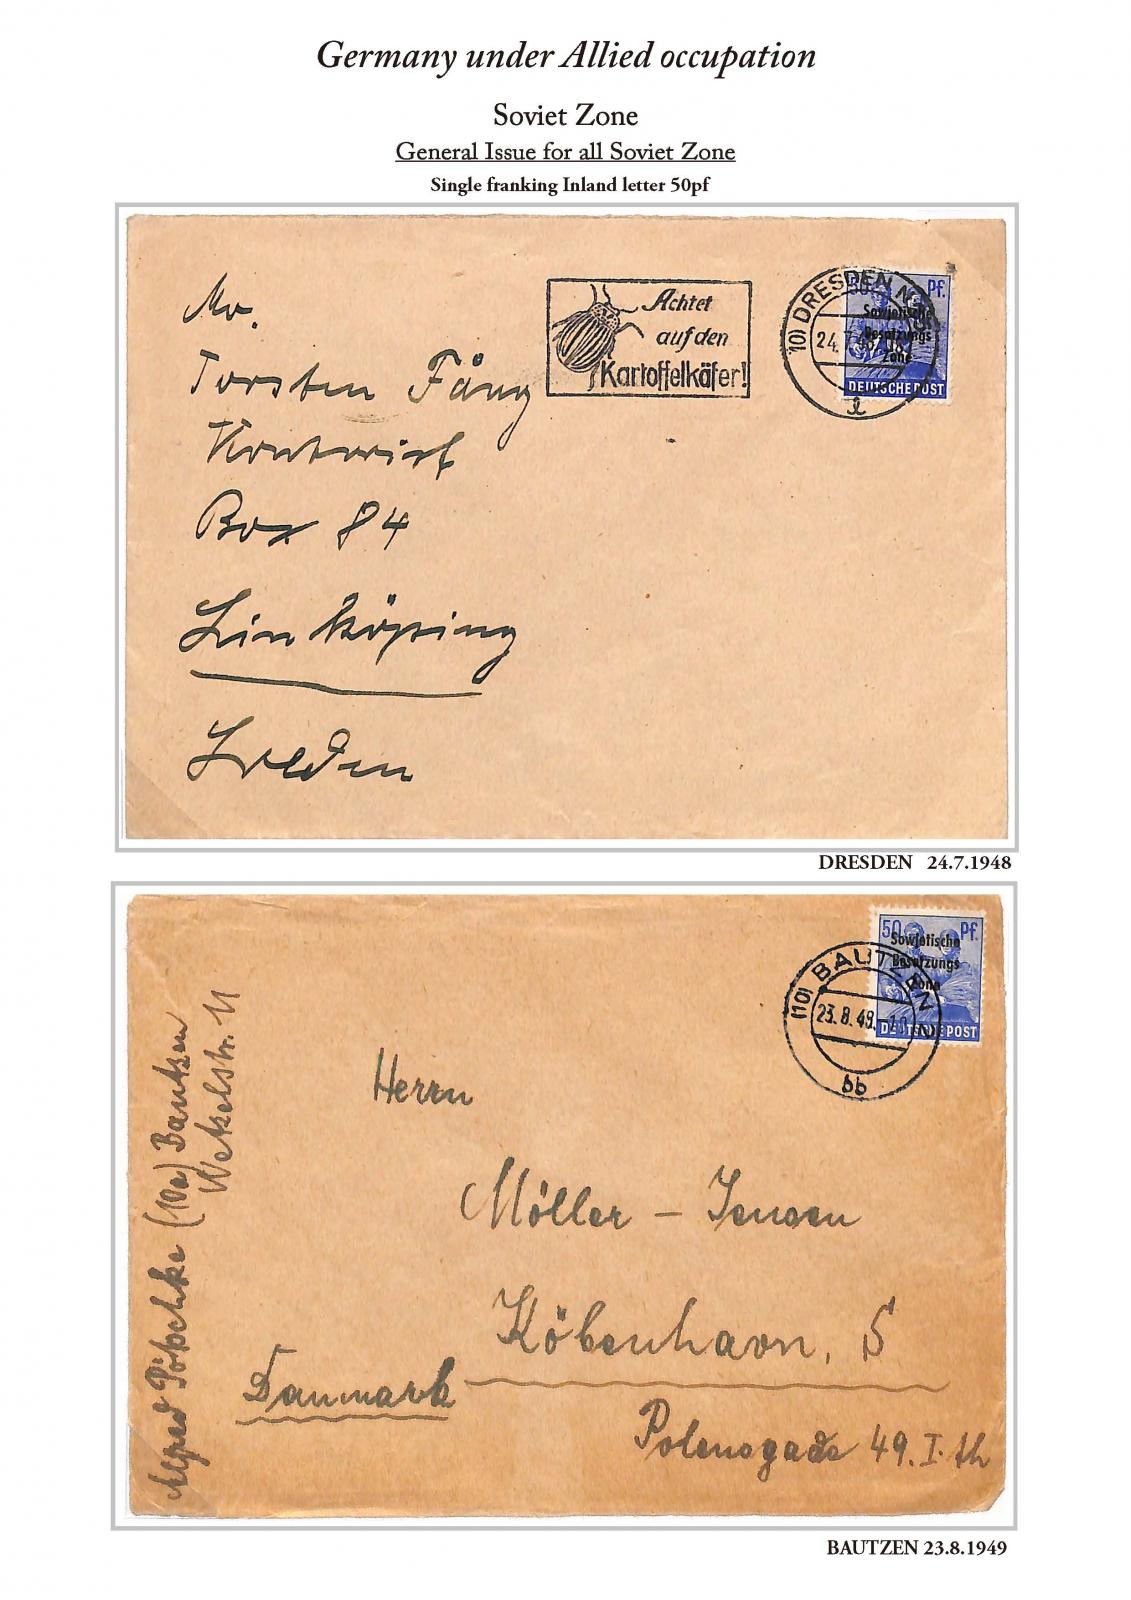 Germany under Allied occupation
Soviet Zone
General Issue for all Soviet Zone
Single franking Inland letter 50pf
Achtet
auf den
Kartoffelkäfer!
(10) DRESDEN N
24.7.48
l
Pf.
Sowjetische
Besatzungs
Zone
DEUTSCHE POST
Torsten Fång
Box 84
Linköping
DRESDEN 24.7.1948
50 Pf.
Sowjetische
Besatzungs
Zone
DEUTSCHE POST
(10) BAUTZEN 2
23.8.49.-10
bb
Alfred Pötschke (10a) Bautzen
Wetzelstr. 11
Herrn
Möller - Jensen
Köbenhavn, S
Danmark
Polensgade 49. I. th
BAUTZEN 23.8.1949